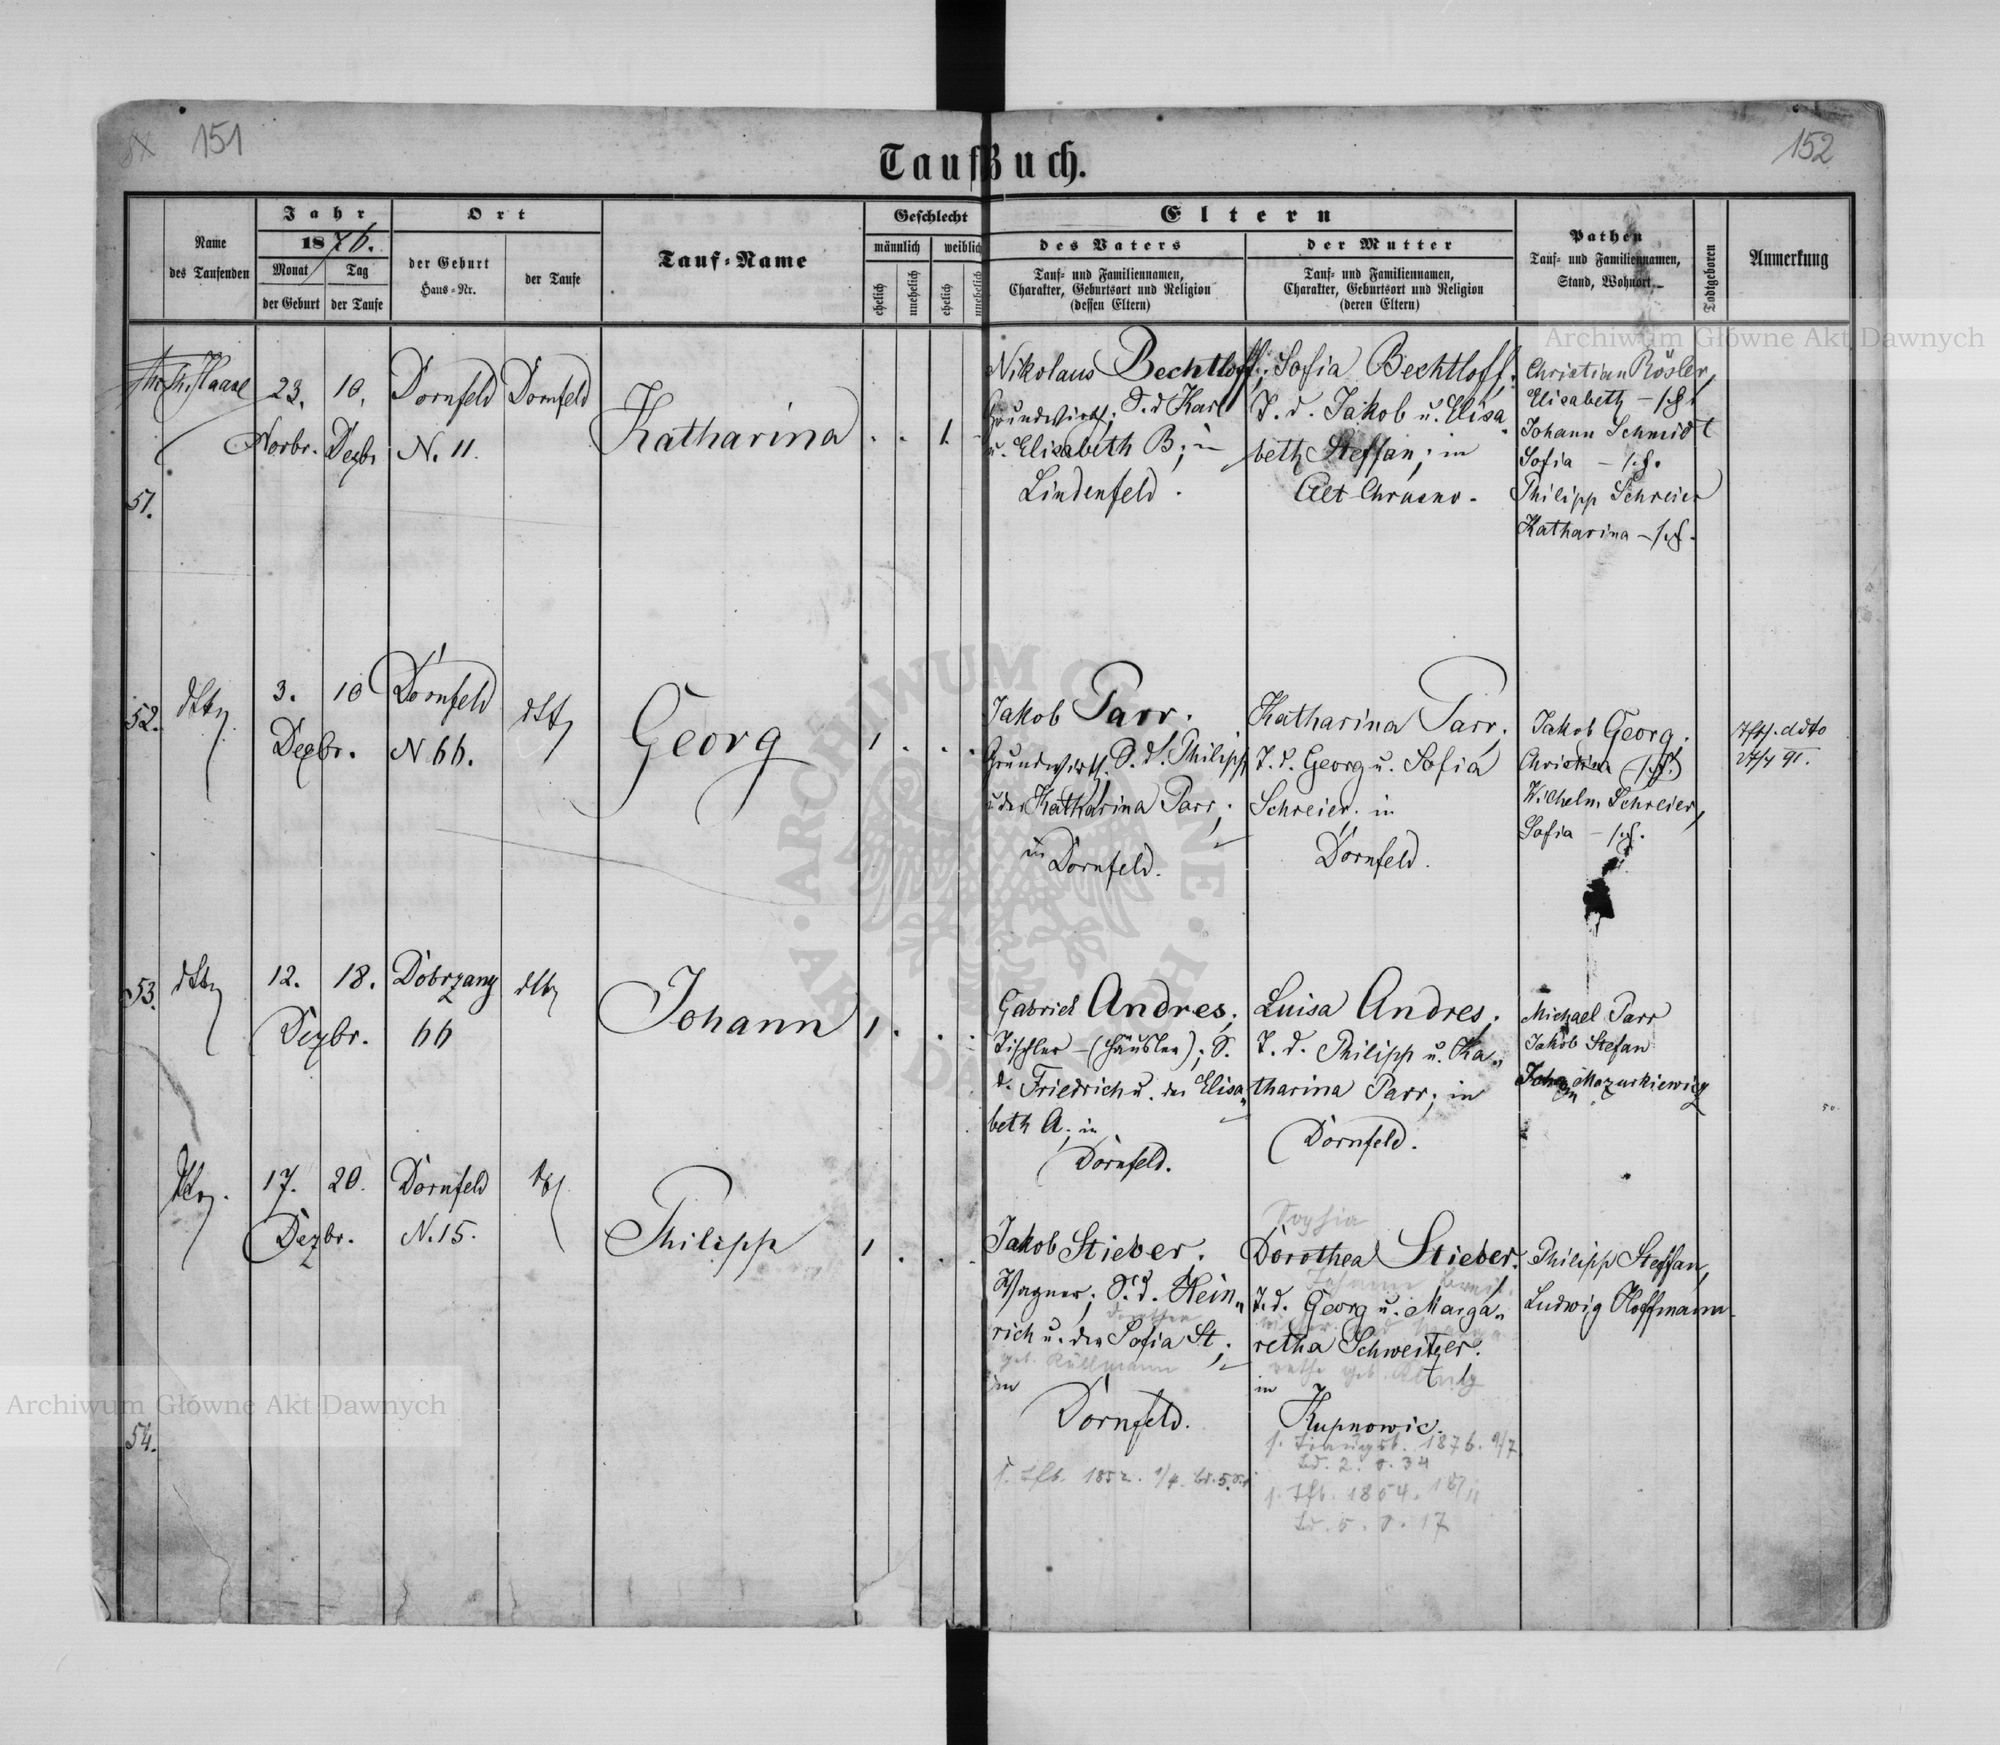 151
152
TaufBuch.
Name
des Taufenden
Jahr
1876.
Monat
Tag
der Geburt
der Taufe
Ort
der Geburt
Haus-Nr.
der Taufe
Tauf-Name
Geschlecht
männlich
weiblich
ehelich
unehelich
ehelich
unehelich
Eltern
des Vaters
Tauf- und Familiennamen,
Charakter, Geburtsort und Religion
(dessen Eltern)
der Mutter
Tauf- und Familiennamen,
Charakter, Geburtsort und Religion
(deren Eltern)
Pathen
Tauf- und Familiennamen,
Stand, Wohnort
Todtgeboren
Anmerkung
51.
23.
Novbr.
10.
Dezbr
Dornfeld
N. 11.
Dornfeld
Katharina
1.
Nikolaus Bechtloff;
Grundwirth; S. d Karl
u. Elisabeth B; in
Lindenfeld.
Sofia Bechtloff;
T. d. Jakob u. Elisa
beth Steffan; in
Alt Chrusno.
Christian Rösler,
Elisabeth
Johann Schmidt
Sofia
Philipp Schreier
Katharina
52.
dtto
3.
10
Dezbr.
Dornfeld
N 66.
dtto
Georg
1
Jakob Parr.
Grundwirth. S. d. Philipp
u der Katharina Parr;
in Dornfeld.
Katharina Parr;
T. d. Georg u. Sofia
Schreier; in
Dornfeld.
Jakob Georg.
Christina
Wilhelm Schreier,
Sofia
53.
dtto
12.
18.
Dezbr.
Dobrzany
66
dtto
Johann
1
Gabriel Andres;
Tischler – (Häusler); S.
d. Friedrich u. der Elisa
beth A. in
Dornfeld.
Luisa Andres;
T. d. Philipp u. Ka
tharina Parr; in
Dornfeld.
Michael Parr
Jakob Stefan
Johann Mazurkiewicz
54.
17.
20.
Dezbr.
Dornfeld
N. 15.
Philipp
1
Jakob Stieber;
Wagner; S. d. Hein
rich u. der Sofia St;
geb. Küllmann
in
Dornfeld.
Sophia
Dorothea Stieber.
T. d. Georg u. Marga
retha Schweitzer.
in
Kupnowic.
1876. 9/7
Bd. 2. S. 34
1854. 18/11
Bd. 5. S. 17
Philipp Steffan,
Ludwig Hoffmann
Archiwum Główne Akt Dawnych
Archiwum Główne Akt Dawnych